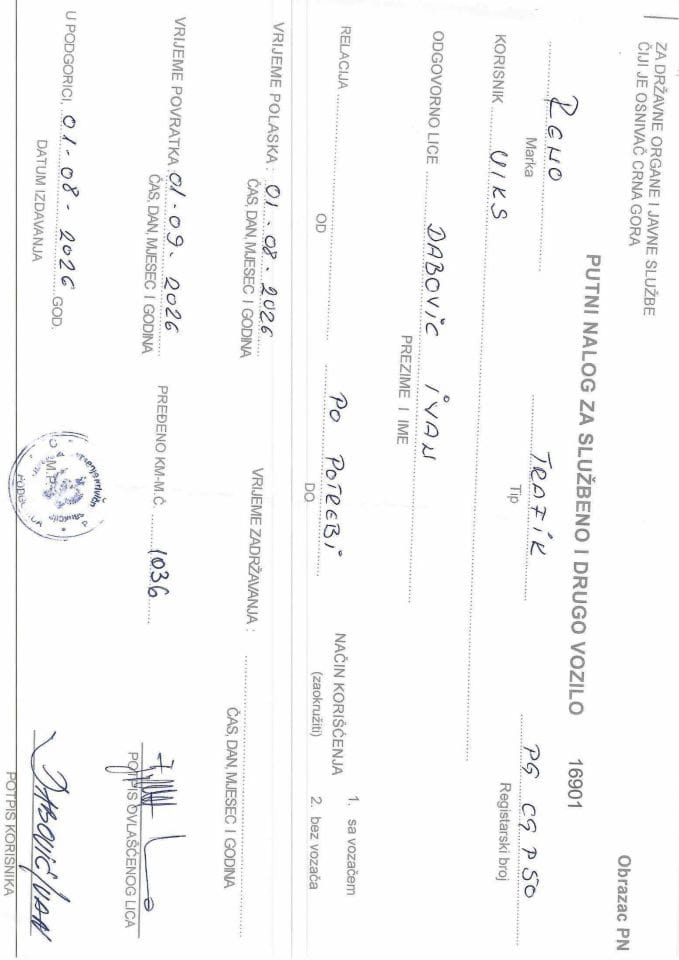 ZA DRŽAVNE ORGANE I JAVNE SLUŽBE
ČIJI JE OSNIVAČ CRNA GORA
Obrazac PN
PUTNI NALOG ZA SLUŽBENO I DRUGO VOZILO 16901
RENO TRAFIK PG CG P50
Marka Tip Registarski broj
KORISNIK VIKS
ODGOVORNO LICE DABOVIC IVAN
PREZIME I IME
RELACIJA PO POTREBI
OD DO
NAČIN KORIŠĆENJA 1. sa vozačem
(zaokružiti) 2. bez vozača
VRIJEME POLASKA : 01.08.2026 VRIJEME ZADRŽAVANJA :
ČAS, DAN, MJESEC I GODINA ČAS, DAN, MJESEC I GODINA
VRIJEME POVRATKA 01-09.2026 PREĐENO KM-M.Č. 1036
ČAS, DAN, MJESEC I GODINA POTPIS OVLAŠĆENOG LICA
U PODGORICI, 01-08-2026 GOD. M.P. DABOVIĆ IVAN
DATUM IZDAVANJA POTPIS KORISNIKA